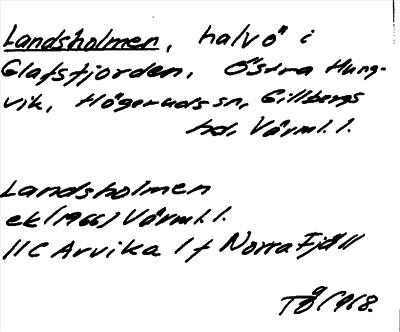 Landsholmen, halvö i
Glafsfjorden, Östra Hung-
vik, Högeruds sn, Gillbergs
hd, Värml. l.
Landsholmen
ek (1966) Värml. l.
11C Arvika 1 f Norra Fjäll
TÅ 1968.